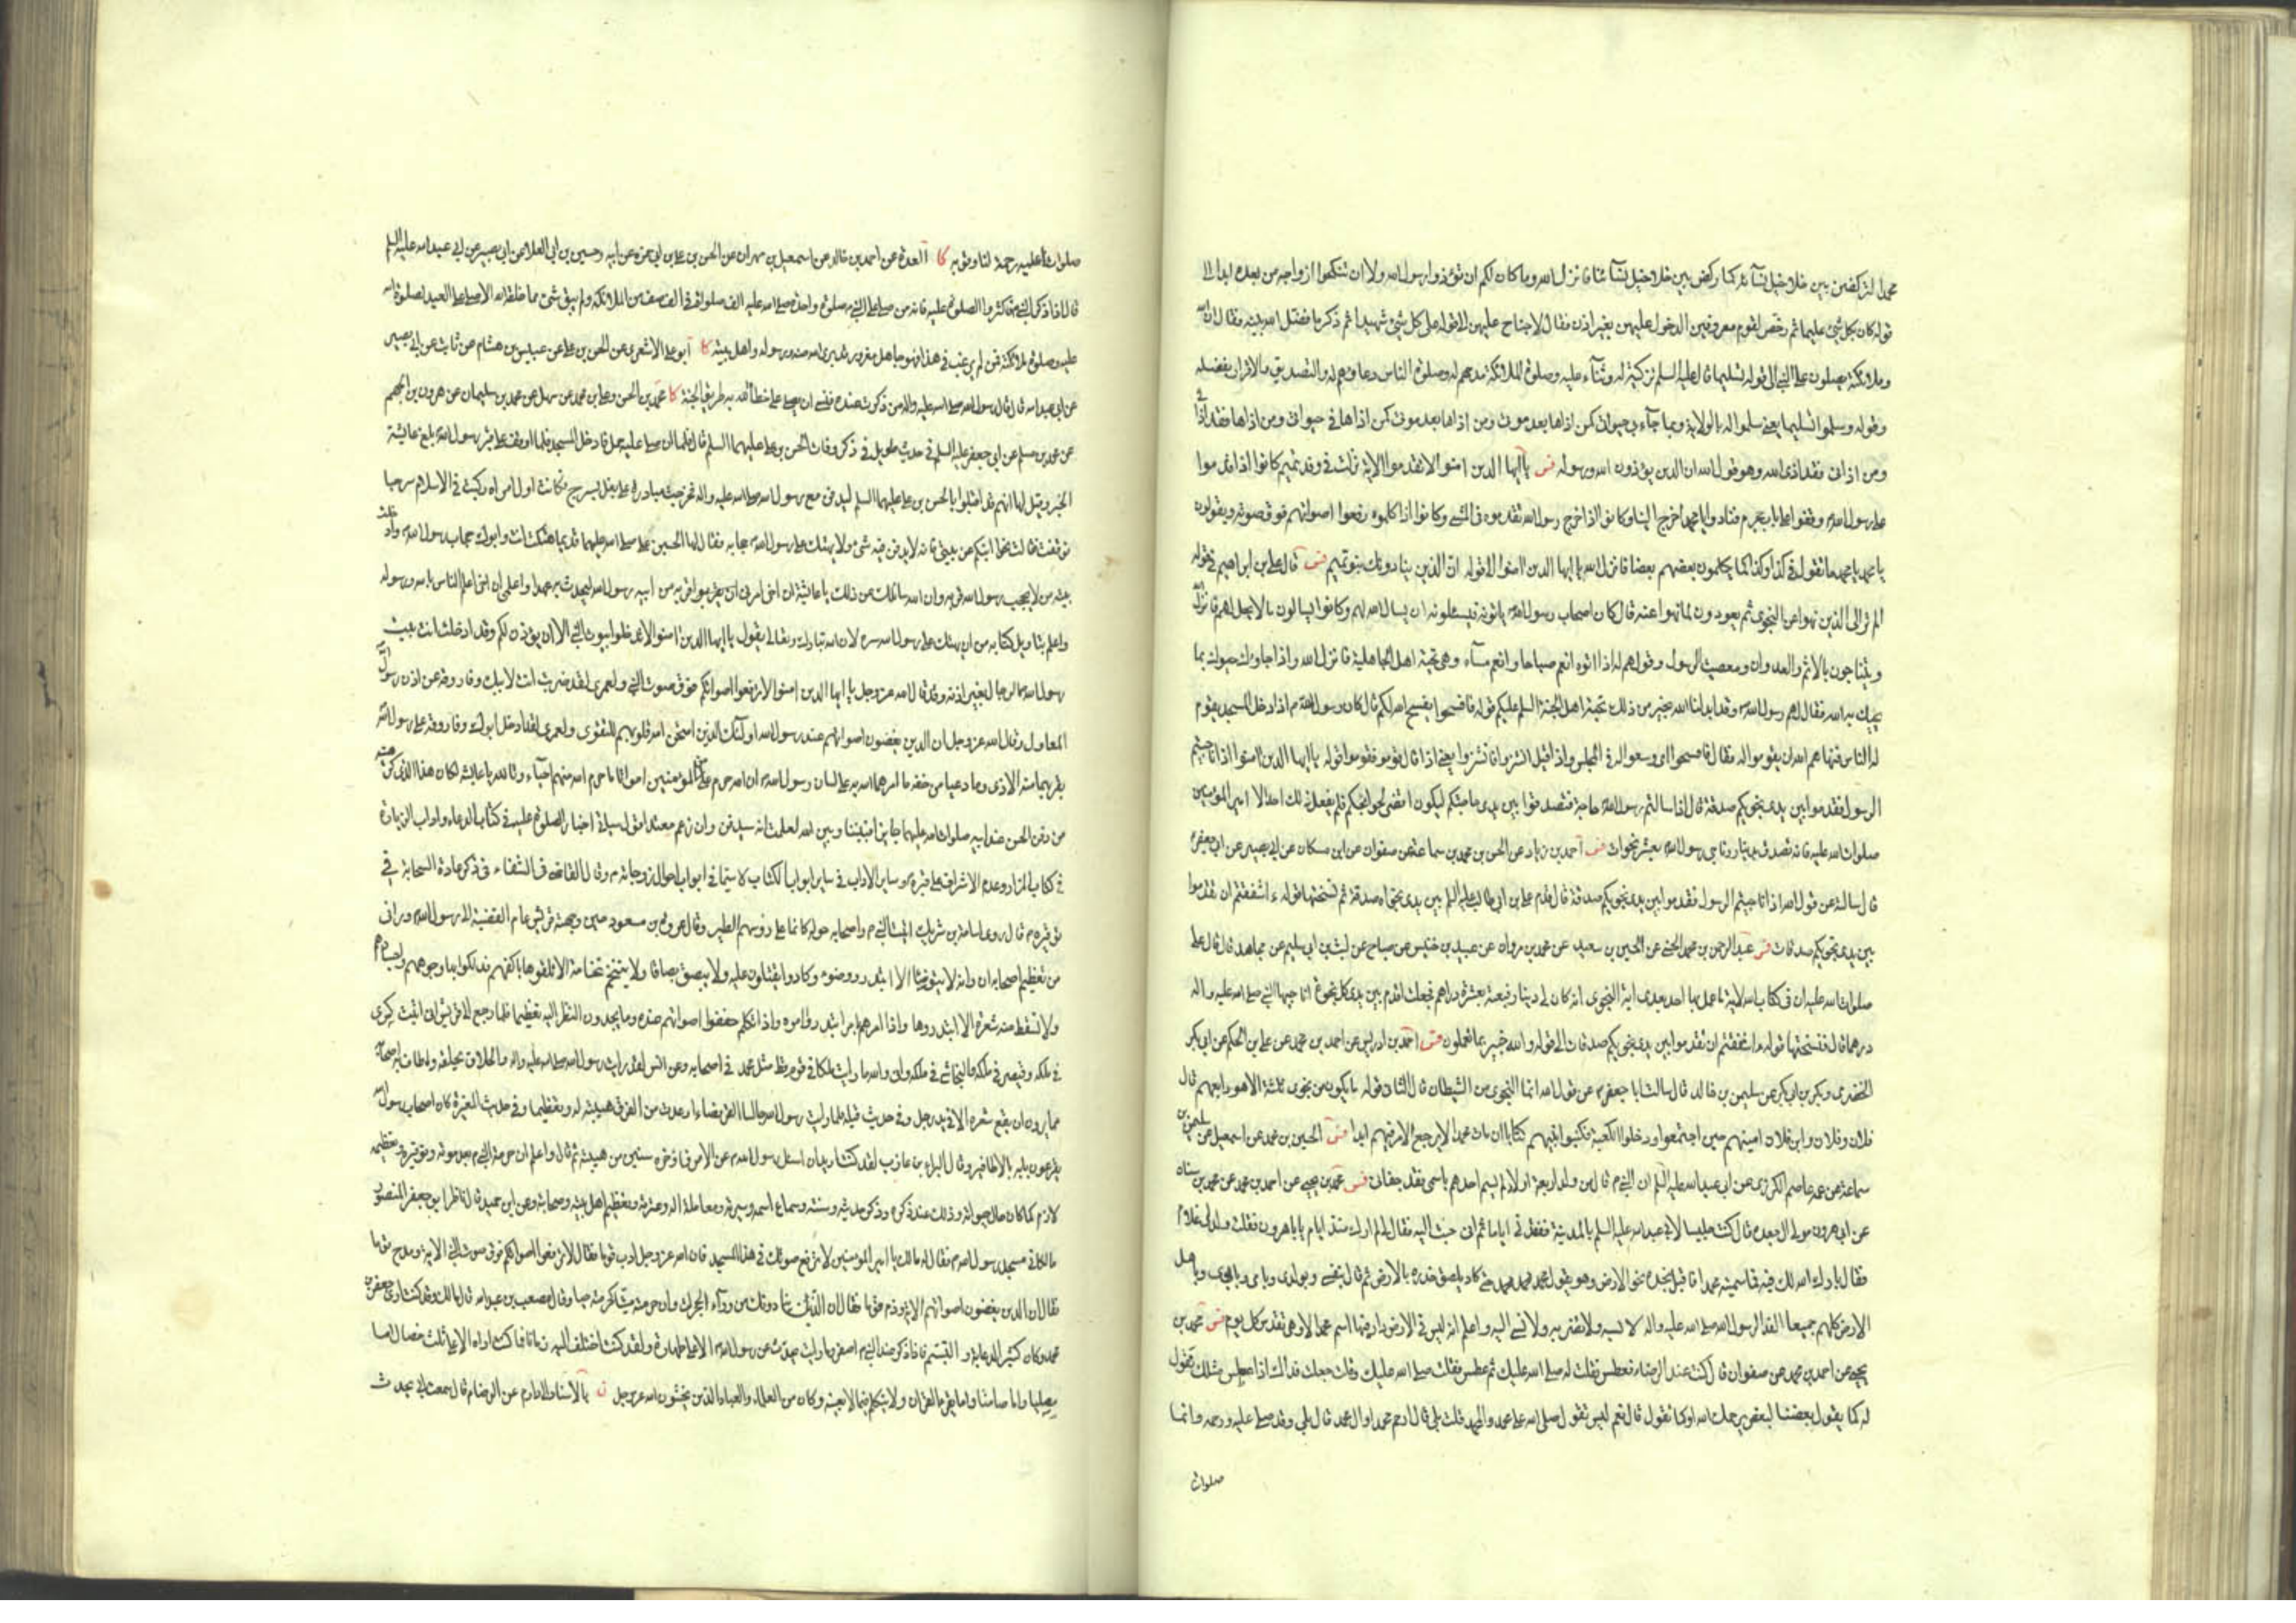 محمدا لنركضن بين خلاخيل نسائه كما ركض بين خلاخيل نسائنا فانزل الله وما كان لكم ان تؤذوا رسول الله ولا ان تنكحوا ازواجه من بعده ابدا الى
قوله كان بكل شئ عليما ثم رخص لقوم معروفين الدخول عليهن بغير اذن فقال لا جناح عليهن الى قوله على كل شئ شهيدا ثم ذكر ما فضل الله نبيه فقال ان الله
وملائكته يصلون على النبي الى قوله تسليما قال عليه السلم تزكية له وثناء عليه وصلوة الملائكة مدحهم له وصلوة الناس دعاؤهم له والتصديق والاقرار بفضله
وقوله وسلموا تسليما يعنى سلموا له بالولاية وبما جاء به حيوتى كمن اذاها بعد موتى ومن اذاها بعد موتى كمن اذاها فى حيوتى ومن اذاها فقد اذانى
ومن اذانى فقد اذى الله وهو قول الله ان الذين يؤذون الله ورسوله فس يا ايها الذين امنوا لا تقدموا الاية نزلت فى وفد تميم كانوا اذا قدموا
على رسول الله وقفوا على باب حجرته فنادوا يا محمد اخرج الينا وكانوا اذا خرج رسول الله تقدموه فى المشى وكانوا اذا كلموه رفعوا اصواتهم فوق صوته ويقولون
يا محمد يا محمد ما تقول فى كذا وكذا كما يكلمون بعضهم بعضا فانزل الله يا ايها الذين امنوا الى قوله ان الذين ينادونك بنو تميم فس قال على بن ابراهيم فى قوله
الم تر الى الذين نهوا عن النجوى ثم يعودون لما نهوا عنه قال كان اصحاب رسول الله ياتونه فيسئلونه ان يسال الله لهم وكانوا يسالون ما لا يحل لهم فانزل الله
ويتناجون بالاثم والعدوان ومعصيت الرسول وقولهم له اذا اتوه انعم صباحا وانعم مساء وهى تحية اهل الجاهلية فانزل الله واذا جاؤك حيوك بما لم
يحيك به الله فقال لهم رسول الله وقد ابدلنا الله بخير من ذلك تحية اهل الجنة السلم عليكم قوله فافسحوا يفسح الله لكم قال كان رسول الله اذا دخل المسجد يقوم
له الناس فنهاهم الله ان يقوموا له فقال فافسحوا اى وسعوا له فى المجلس واذا قيل انشزوا فانشزوا يعنى اذا قال قوموا فقوموا قوله يا ايها الذين امنوا اذا ناجيتم
الرسول فقدموا بين يدى نجويكم صدقة قال اذا سالتم رسول الله حاجة فتصدقوا بين يدى حاجتكم ليكون اقضى لحوائجكم فلم يفعل ذلك احد الا امير المؤمنين
صلوات الله عليه فانه تصدق بدينار وناجى رسول الله بعشر نجوات فس احمد بن زياد عن الحسن بن محمد بن سماعة عن صفوان عن ابن مسكان عن ابى بصير عن ابى جعفر
قال سالته عن قول الله اذا ناجيتم الرسول فقدموا بين يدى نجويكم صدقة قال قدم على بن ابى طالب عليه السلم بين يدى نجواه صدقة ثم نسختها قوله ءاشفقتم ان تقدموا
بين يدى نجويكم صدقات فس عبد الرحمن بن محمد الحسنى عن الحسين بن سعيد عن محمد بن مروان عن عبيد بن خنيس عن صباح عن ليث بن ابى سليم عن مجاهد قال قال على
صلوات الله عليه ان فى كتاب الله لاية ما عمل بها احد بعدى اية النجوى انه كان لى دينار فبعته بعشرة دراهم فجعلت اقدم بين يدى كل نجوة اناجيها النبى صلى الله عليه واله
درهما قال فنسختها قوله ءاشفقتم ان تقدموا بين يدى نجويكم صدقات الى قوله والله خبير بما تعملون فس احمد بن ادريس عن احمد بن محمد عن على بن الحكم عن ابى بكر
الحضرمى وبكر بن ابى بكر عن سليمن بن خالد قال سالت ابا جعفر عن قول الله انما النجوى من الشيطان قال الثانى قوله ما يكون من نجوى ثلثة الا هو رابعهم قال
فلان وفلان وابن فلان امينهم حين اجتمعوا ودخلوا الكعبة فكتبوا بينهم كتابا ان مات محمد الا يرجع الامر فيهم ابدا فس الحسين بن محمد عن اسمعيل عن سليمن بن
سماعة عن عمه عاصم الكوزى عن ابى عبد الله عليه السلم ان النبى قال من ولد له اربعة اولاد لم يسم احدهم باسمى فقد جفانى فس محمد بن يحيى عن احمد بن محمد عن محمد بن سنان
عن ابى هرون مولى ال جعدة قال كنت جليسا لابى عبد الله عليه السلم بالمدينة ففقدنى اياما ثم انى جئت اليه فقال لى لم ارك منذ ايام يا با هرون فقلت ولد لى غلام
فقال بارك الله لك فيه فما سميته محمدا فاقبل بخده نحو الارض وهو يقول محمد محمد محمد حتى كاد يلصق خده بالارض ثم قال بنفسى وبولدى وباهلى وبابوى وباهل
الارض كلهم جميعا الفدا لرسول الله صلى الله عليه واله لا تسبه ولا تضربه ولا تسئ اليه واعلم انه ليس فى الارض دار فيها اسم محمد الا وهى تقدس كل يوم فس محمد بن
يحيى عن احمد بن محمد عن صفوان قال كنت عند الرضا فعطس فقلت له صلى الله عليك ثم عطس فقلت صلى الله عليك وقلت جعلت فداك اذا عطس مثلك نقول
له كما يقول بعضنا لبعض يرحمك الله او كما نقول قال نعم ليس تقول صلى الله على محمد وال محمد قلت بلى قال ارحم محمدا وال محمد قال بلى وقد صلى عليه ورحمه وانما
صلوات
صلواتنا عليه رحمة لنا وقربة كا العدة عن احمد بن خالد عن اسمعيل بن مهران عن الحسن بن على بن ابى حمزة عن ابيه وحسين بن ابى العلا عن ابى بصير عن ابى عبد الله عليه السلم
قال اذا ذكر النبى فاكثروا الصلوة عليه فانه من صلى على النبى صلوة واحدة صلى الله عليه الف صلوة فى الف صف من الملائكة ولم يبق شئ مما خلقه الله الا صلى على العبد لصلوة الله
عليه وصلوة ملائكته فمن لم يرغب فى هذا فهو جاهل مغرور قد برئ الله منه ورسوله واهل بيته كا ابو على الاشعرى عن الحسن بن على عن عبيس بن هشام عن ثابت عن ابى بصير
عن ابى عبد الله قال قال رسول الله صلى الله عليه واله من ذكرت عنده فنسى ان يصلى على خطا الله به طريق الجنة كا محمد بن الحسن وعلى بن محمد عن سهل عن محمد بن سليمان عن هرون بن الجهم
عن محمد بن مسلم عن ابى جعفر عليه السلم فى حديث طويل فى ذكر وفات الحسن بن على عليهما السلم قال فلما ان صلى عليه حمل فادخل المسجد فلما اوقف على قبر رسول الله بلغ عايشة
الخبر وقيل لها انهم قد اقبلوا بالحسن بن على عليهما السلم ليدفن مع رسول الله صلى الله عليه واله فخرجت مبادرة على بغل بسرج فكانت اول امراة ركبت فى الاسلام سرجا
فوقفت فقالت نحوا ابنكم عن بيتى فانه لا يدفن فيه شئ ولا يهتك على رسول الله حجابه فقال لها الحسين بن على صلى الله عليهما قديما هتكت انت وابوك حجاب رسول الله وادخلت
بيته من لا يحب رسول الله قربه وان الله سائلك عن ذلك يا عائشة ان اخى امرنى ان يقربه من ابيه رسول الله ليحدث به عهدا واعلمى ان اخى اعلم الناس بالله ورسوله
واعلم بتاويل كتابه من ان يهتك على رسول الله ستره لان الله تبارك وتعالى يقول يا ايها الذين امنوا لا تدخلوا بيوت النبى الا ان يؤذن لكم وقد ادخلت انت بيت
رسول الله الرجال بغير اذنه وقد قال الله عز وجل يا ايها الذين امنوا لا ترفعوا اصواتكم فوق صوت النبى ولعمرى لقد ضربت انت لابيك وفاروقه عند اذن رسول الله
المعاول وقال الله عز وجل ان الذين يغضون اصواتهم عند رسول الله اولئك الذين امتحن الله قلوبهم للتقوى ولعمرى لقد ادخل ابوك وفاروقه على رسول الله
بقربهما منه الاذى وما رعيا من حقه ما امرهما الله به على لسان رسول الله ان الله حرم على المؤمنين امواتا ما حرم الله منهم احياء وتالله يا عايشة لو كان هذا الذى كرهتيه
من دفن الحسن عند ابيه صلوات الله عليهما جايزا فيما بيننا وبين الله لعلمت انه سيدفن وان رغم معطسك اقول سياتى اخبار الصلوة عليه فى كتاب الدعاء واداب الزيارة
فى كتاب المزار وعدم الاشراف على قبره وساير الاداب فى ساير ابواب الكتاب لا سيما فى ابواب احوال زوجاته وقال القاضى فى الشفاء فى ذكر عادة الصحابة فى
توقيره قال روى اسامة بن شريك اتيت النبى واصحابه حوله كانما على رؤسهم الطير وقال عروة بن مسعود حين وجهته قريش عام القضية الى رسول الله وراى
من تعظيم اصحابه له انه لا يتوضا الا ابتدروا وضوءه وكادوا يقتتلون عليه ولا يبصق بصاقا ولا يتنخم نخامة الا تلقوها باكفهم فدلكوا بها وجوههم واجسادهم
ولا تسقط منه شعرة الا ابتدروها واذا امرهم بامر ابتدروا امره واذا تكلم خفضوا اصواتهم عنده وما يحدون النظر اليه تعظيما فلما رجع الى قريش قال انى اتيت كسرى
فى ملكه وقيصر فى ملكه والنجاشى فى ملكه وانى والله ما رايت ملكا فى قوم قط مثل محمد فى اصحابه وعن انس لقد رايت رسول الله صلى الله عليه واله والحلاق يحلقه واطاف به اصحابه
فما يريدون ان يقع شعره الا فى يد رجل وفى حديث قيلة فلما رايت رسول الله جالسا القرفصاء ارعدت من الفرق هيبة له وتعظيما وفى حديث المغيرة كان اصحاب رسول الله
يقرعون بابه بالاظافير وقال البراء بن عازب لقد كنت اريد ان اسئل رسول الله عن الامر فاؤخره سنين من هيبته ثم قال واعلم ان حرمة النبى بعد موته وتوقيره وتعظيمه
لازم كما كان حال حيوته وذلك عند ذكره وذكر حديثه وسنته وسماع اسمه وسيرته ومعاملة اله وعترته وتعظيم اهل بيته وصحابته وعن ابن حميد قال ناظر ابو جعفر المنصور
مالكا فى مسجد رسول الله فقال له مالك يا امير المؤمنين لا ترفع صوتك فى هذا المسجد فان الله عز وجل ادب قوما فقال لا ترفعوا اصواتكم فوق صوت النبى الاية ومدح قوما
فقال ان الذين يغضون اصواتهم الاية وذم قوما فقال ان الذين ينادونك من وراء الحجرات وان حرمته ميتا كحرمته حيا وقال مصعب بن عبد الله قال مالك وقد كنت ارى جعفر بن
محمد وكان كثير الدعابة والتبسم فاذا ذكر عنده النبى اصفر وما رايته يحدث عن رسول الله الا على طهارة ولقد كنت اختلف اليه زمانا فما كنت اراه الا على ثلث خصال اما
مصليا واما صامتا واما يقرا القران ولا يتكلم فيما لا يعنيه وكان من العلماء والعباد الذين يخشون الله عز وجل ن بالاسناد الى دارم عن الرضا قال سمعت ابى يحدث